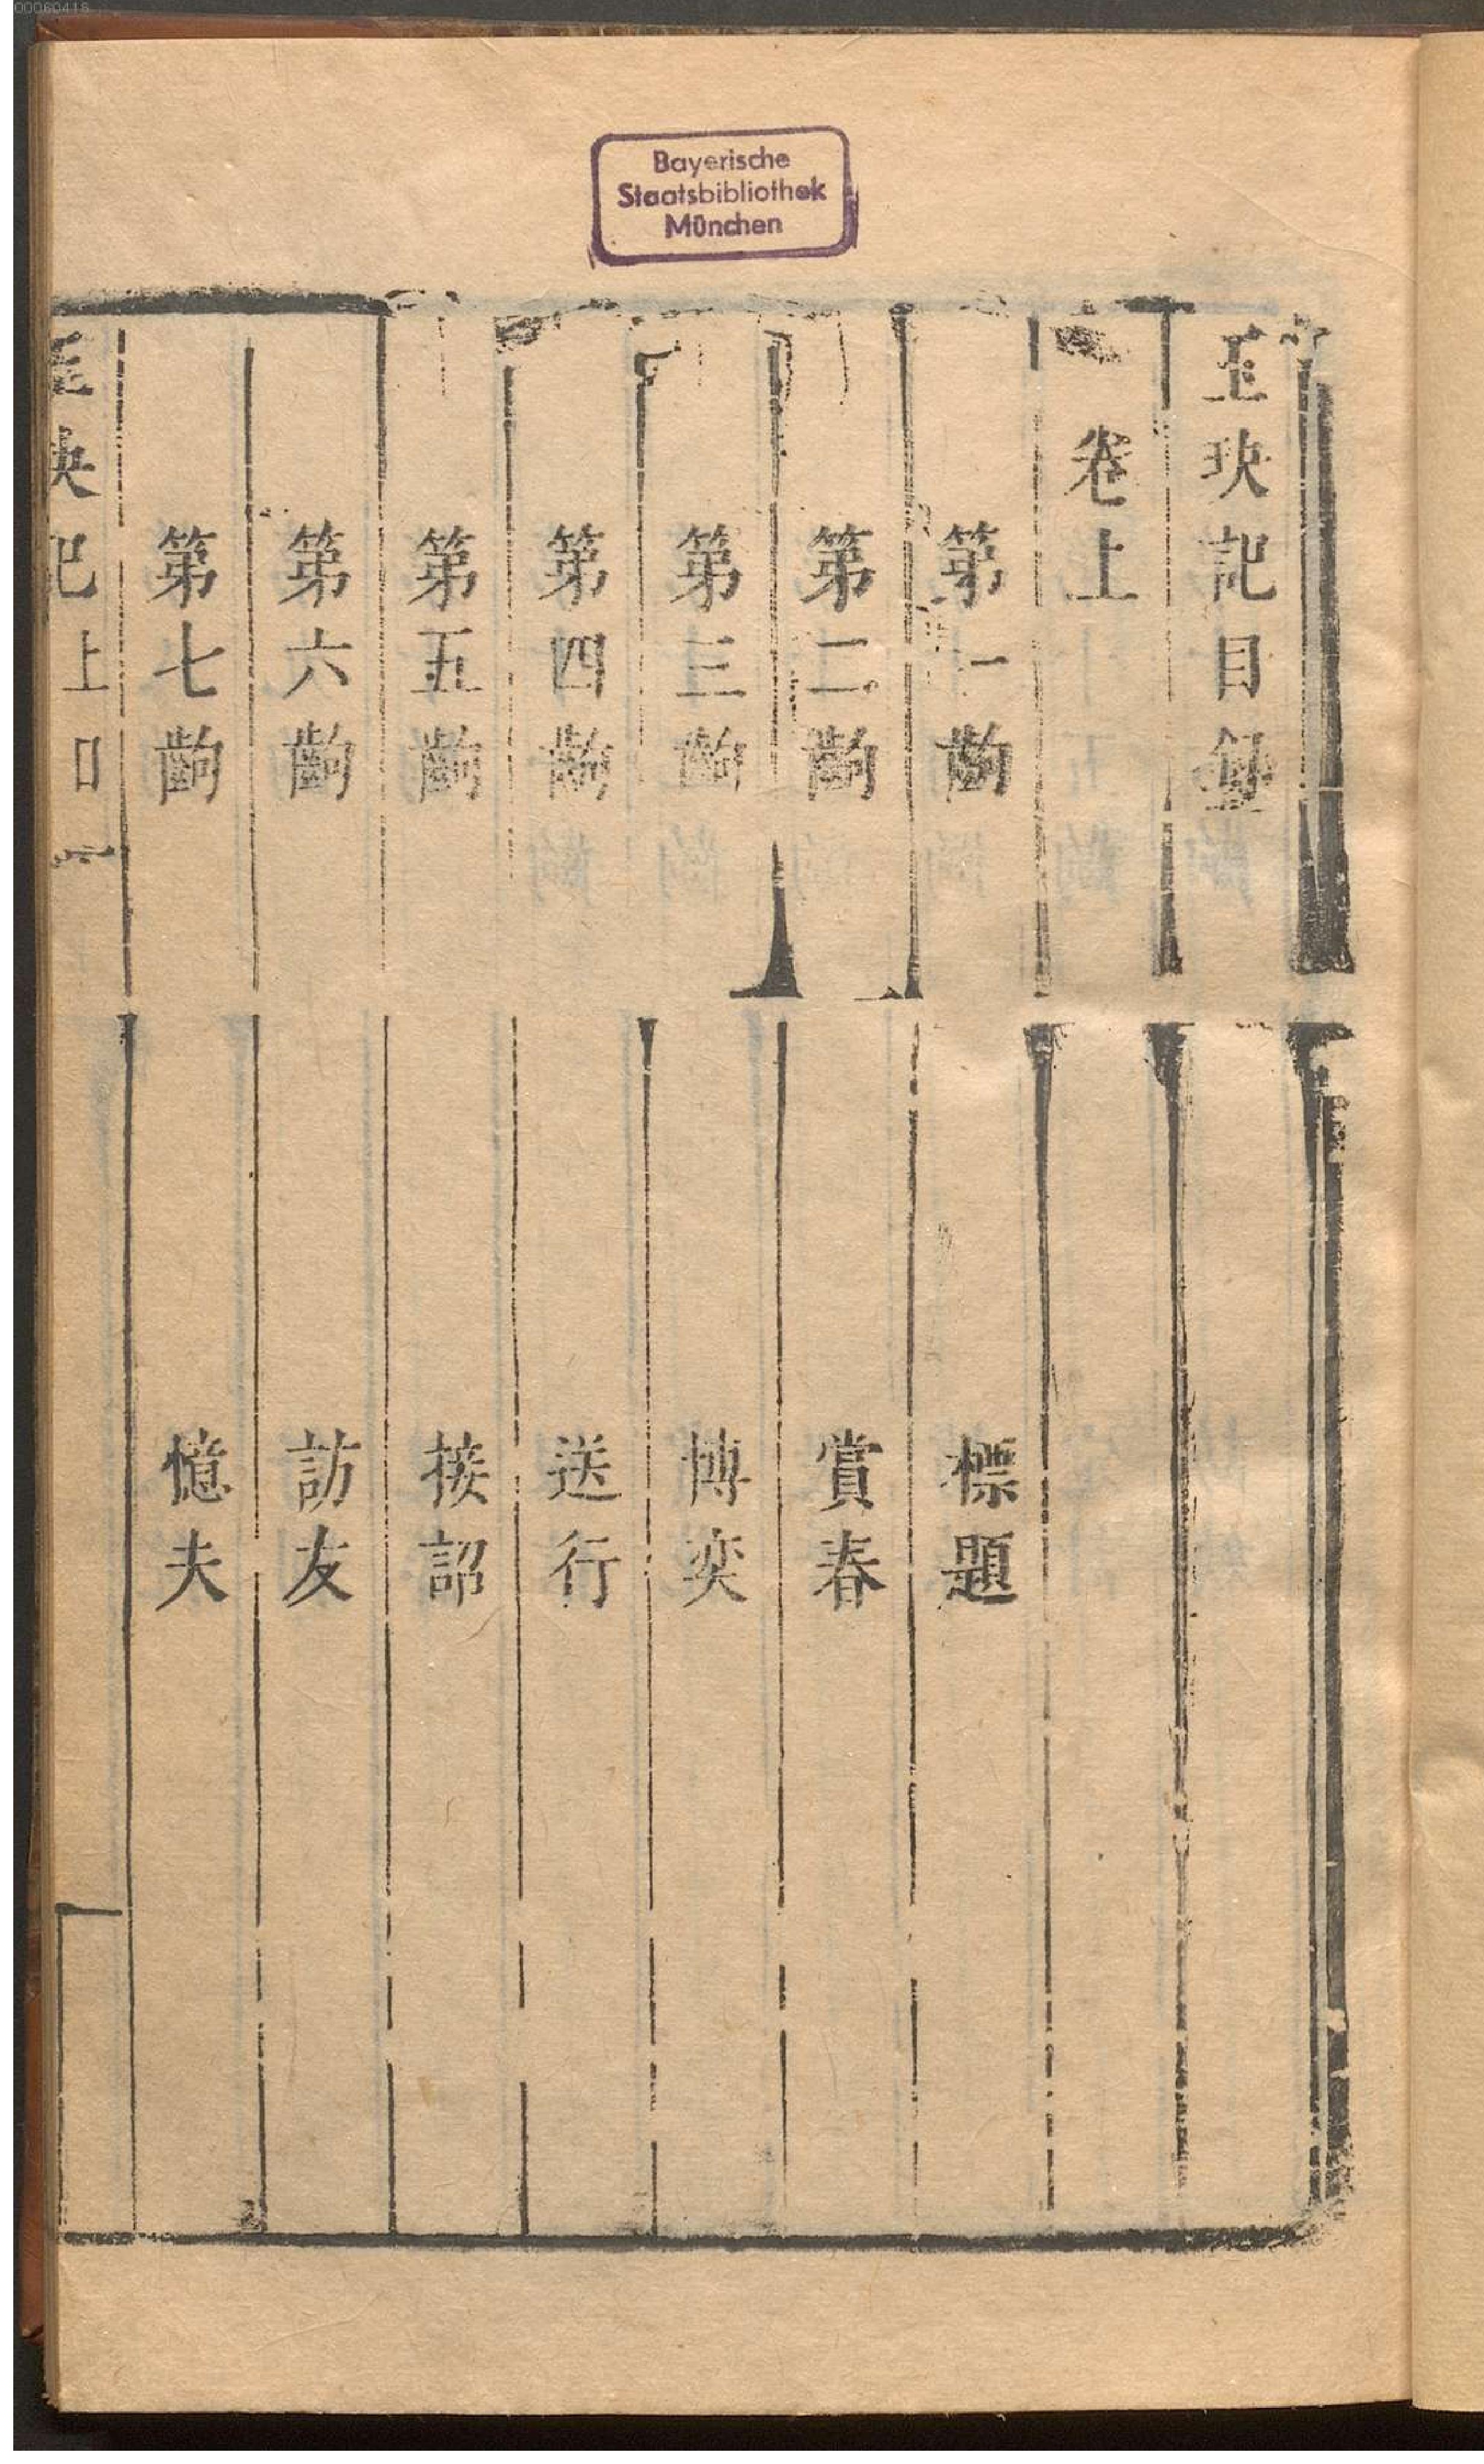 00060418
Bayerische
Staatsbibliothek
München
玉玦記目錄
卷上
第一齣 標題
第二齣 賞春
第三齣 博奕
第四齣 送行
第五齣 接詔
第六齣 訪友
第七齣 憶夫
玉玦記 上目 一